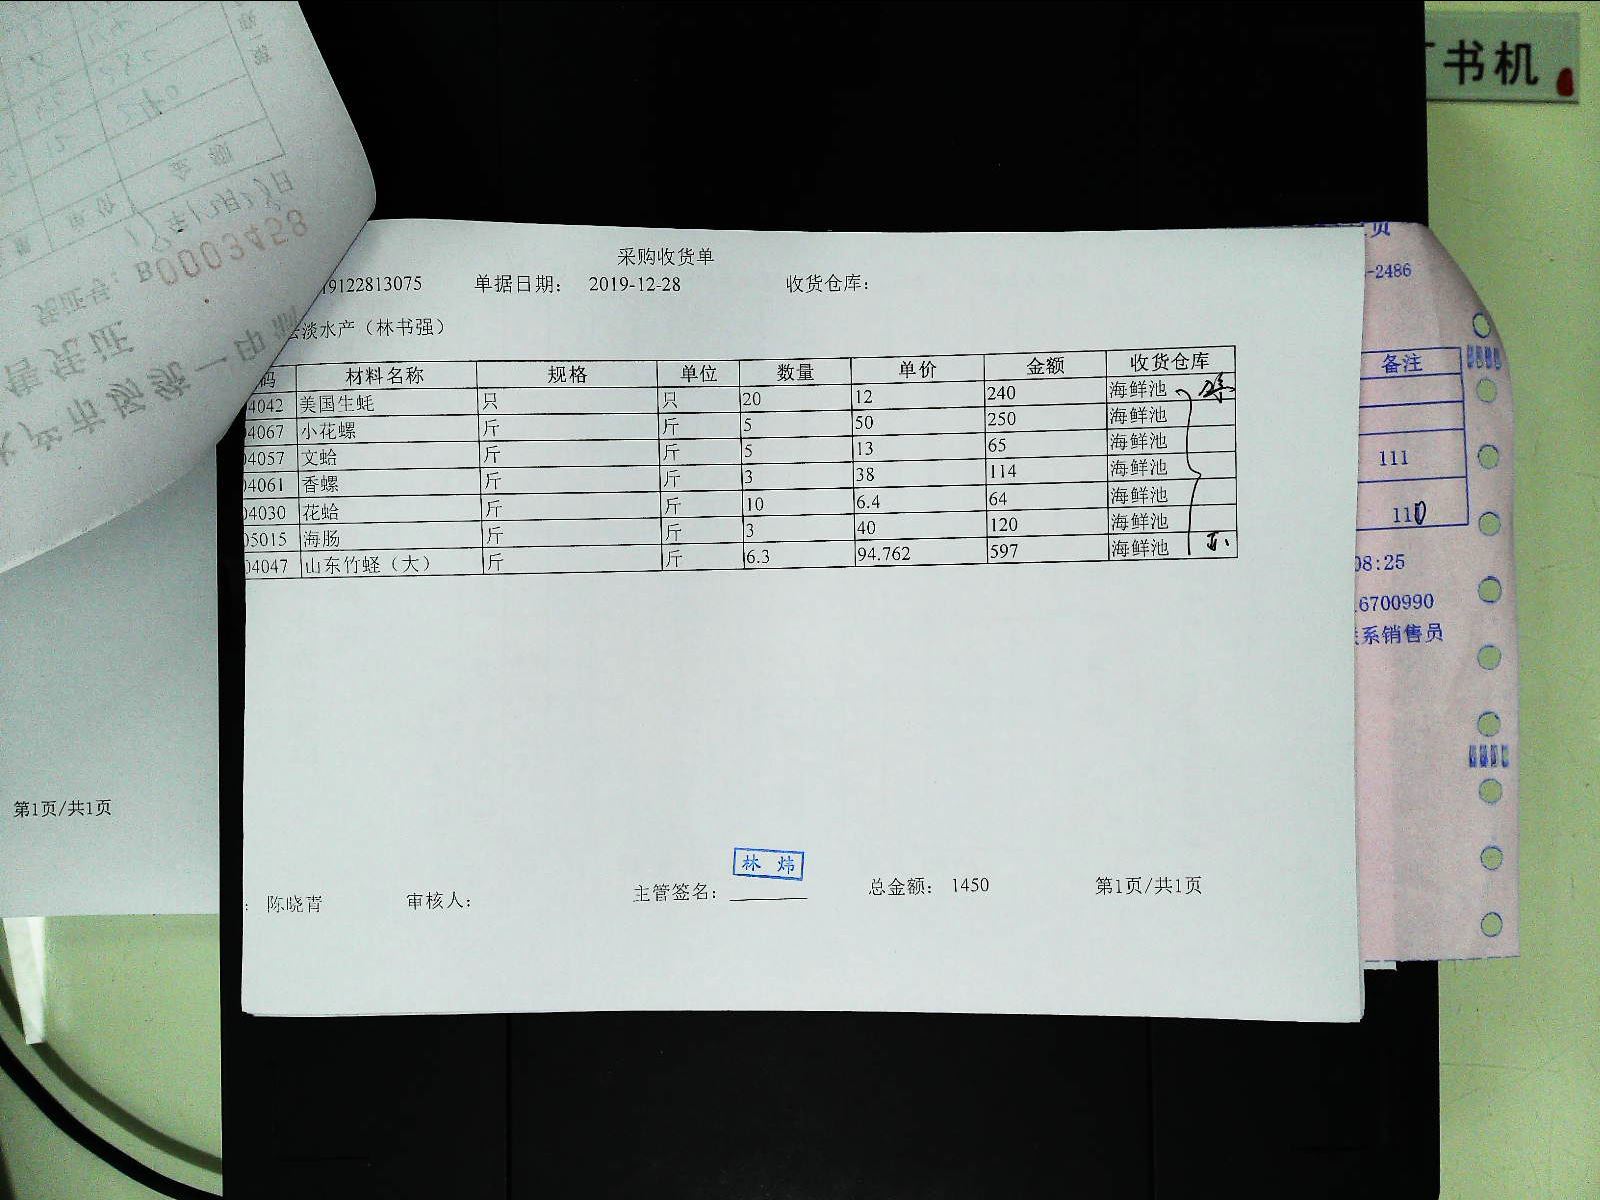 书机
采购收货单
19122813075 单据日期： 2019-12-28 收货仓库：
淡水产（林书强）
码 材料名称 规格 单位 数量 单价 金额 收货仓库
4042 美国生蚝 只 只 20 12 240 海鲜池
04067 小花螺 斤 斤 5 50 250 海鲜池
04057 文蛤 斤 斤 5 13 65 海鲜池
04061 香螺 斤 斤 3 38 114 海鲜池
04030 花蛤 斤 斤 10 6.4 64 海鲜池
05015 海肠 斤 斤 3 40 120 海鲜池
04047 山东竹蛏（大） 斤 斤 6.3 94.762 597 海鲜池
林 炜
： 陈晓青 审核人： 主管签名： 总金额： 1450 第1页/共1页
第1页/共1页
页
-2486
备注
111
110
08:25
6700990
系销售员
B0003458